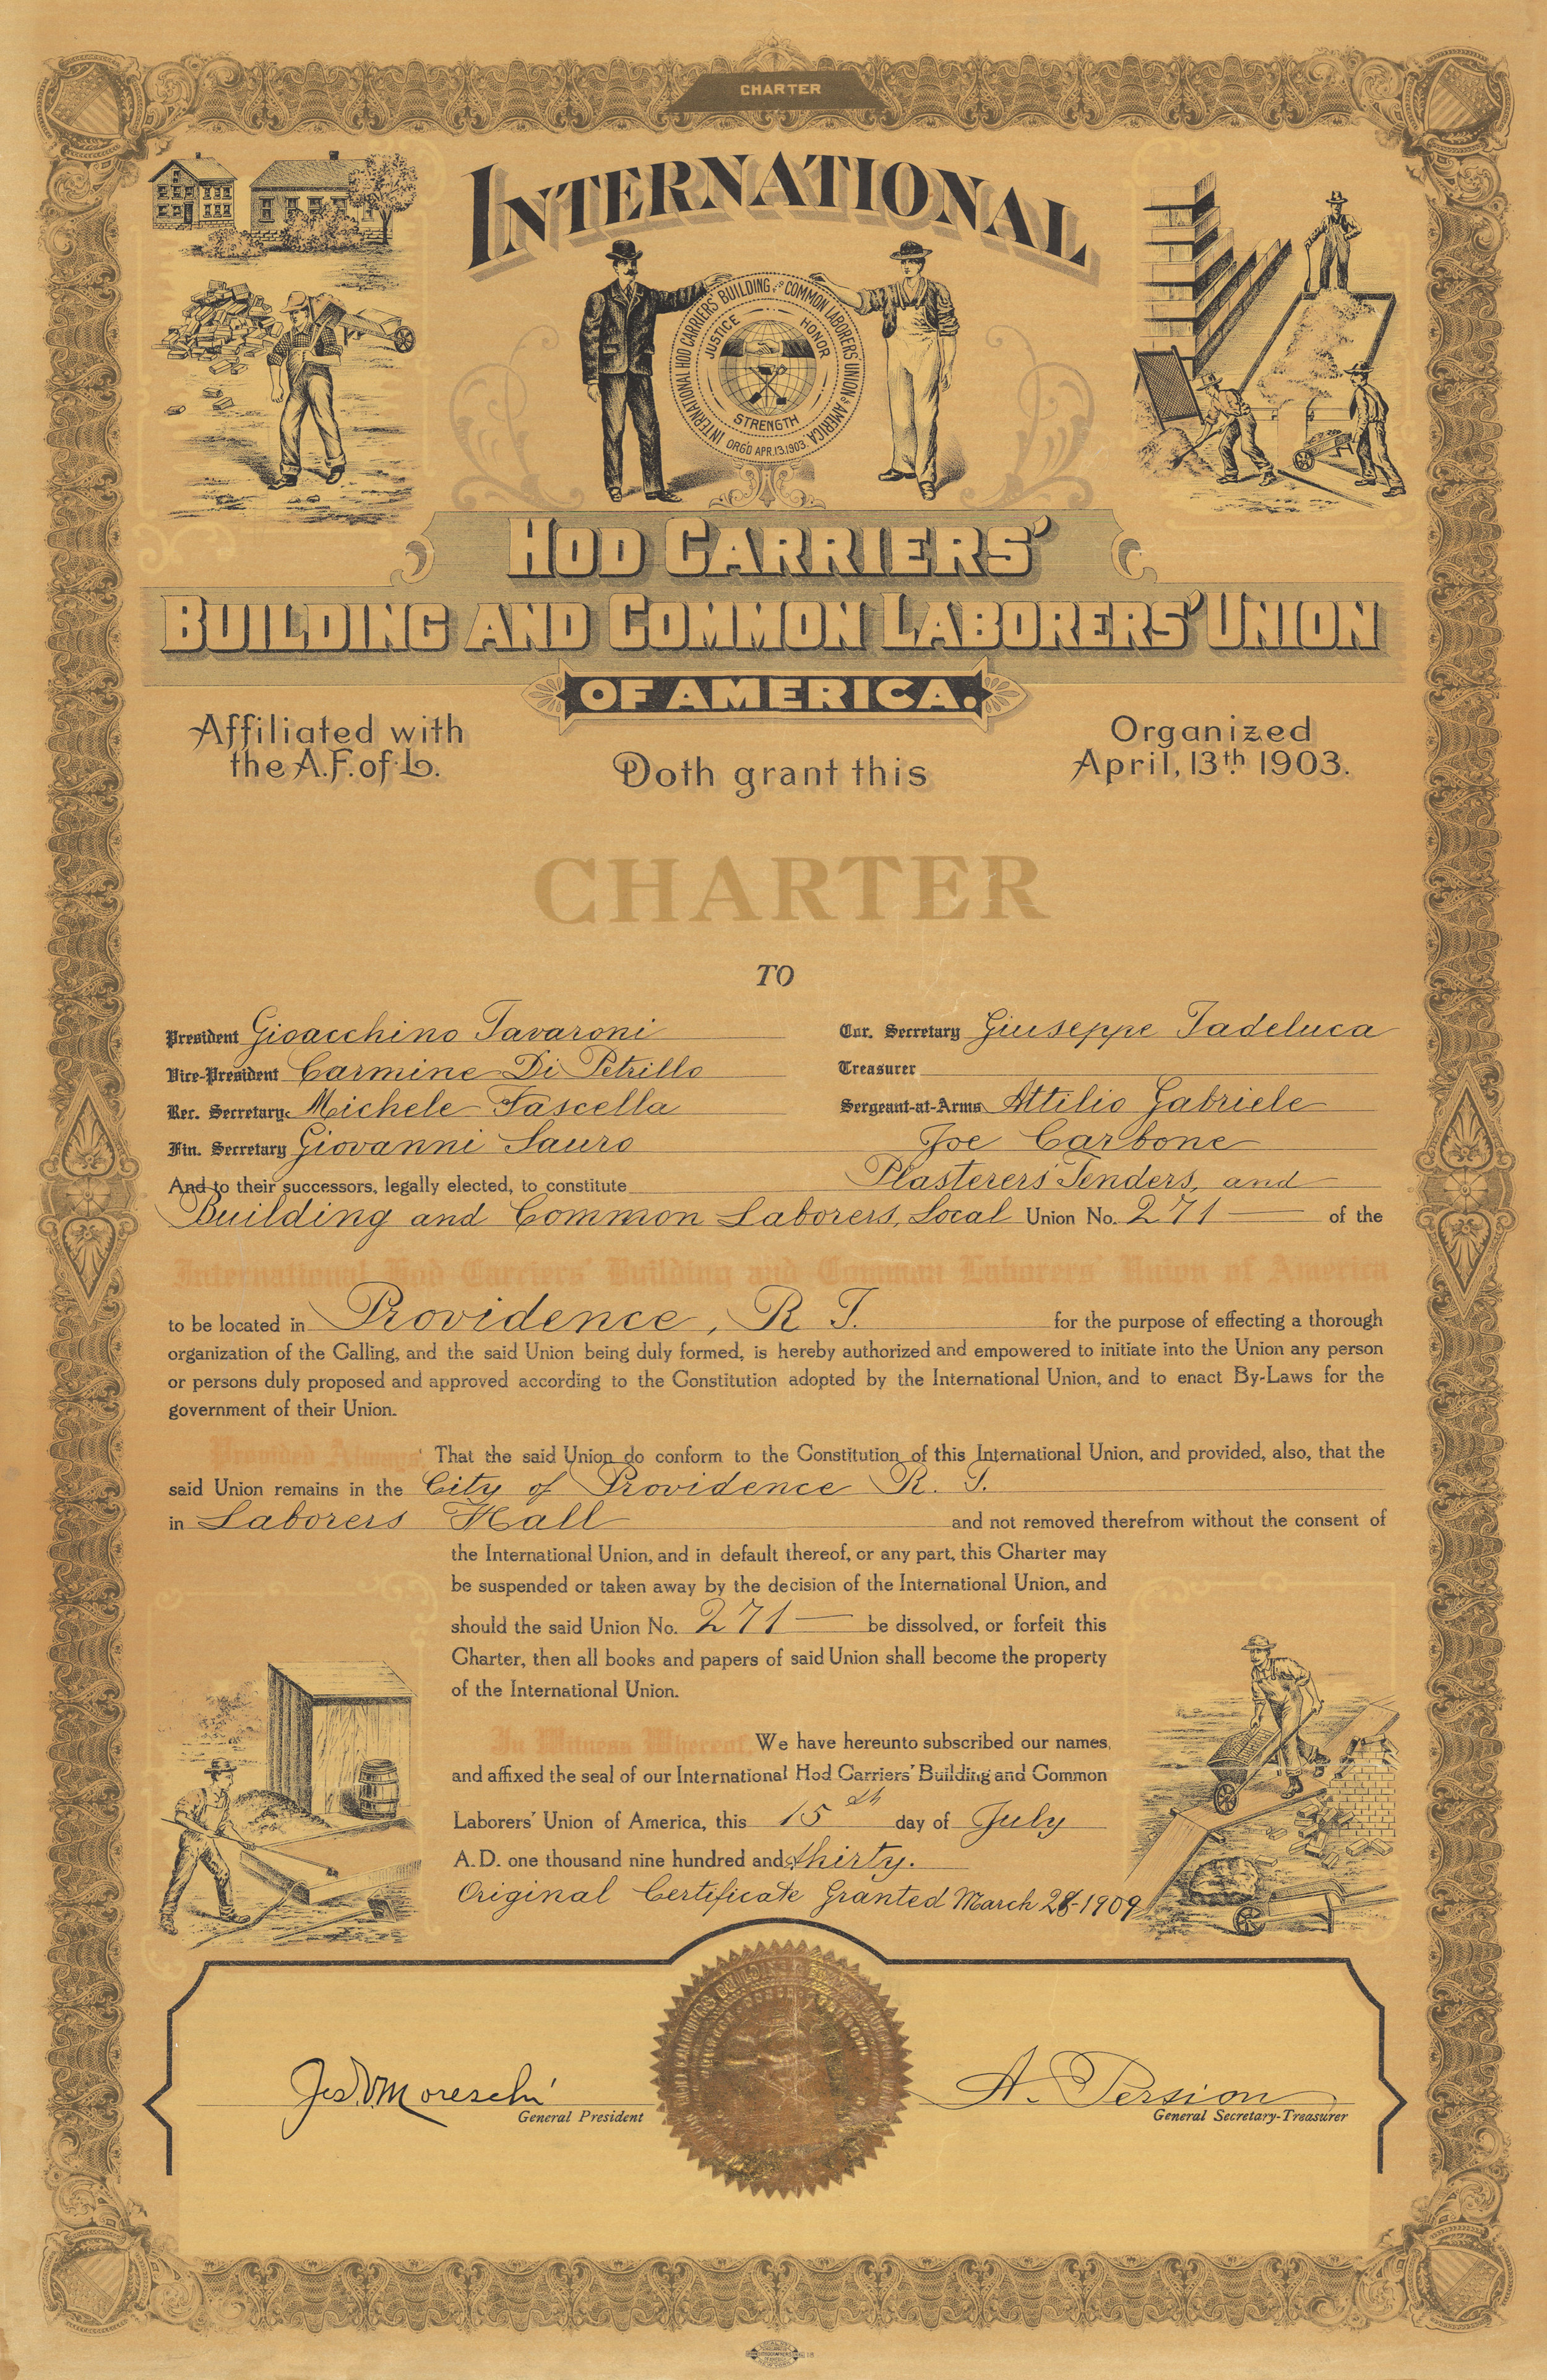 CHARTER
INTERNATIONAL
INTERNATIONAL HOD CARRIERS' BUILDING AND COMMON LABORERS' UNION OF AMERICA
JUSTICE HONOR
STRENGTH
ORG'D APR.13.1903.
HOD CARRIERS'
BUILDING AND COMMON LABORERS' UNION
OF AMERICA.
Affiliated with
the A.F. of L.
Doth grant this
Organized
April, 13th 1903.
CHARTER
TO
President Gioacchino Tavaroni
Cor. Secretary Giuseppe Tadeluca
Vice-President Carmine Di Petrillo
Treasurer
Rec. Secretary Michele Fascella
Sergeant-at-Arms Attilio Gabriele
Fin. Secretary Giovanni Sauro
Joe Carbone
And to their successors, legally elected, to constitute Plasterers' Tenders, and
Building and Common Laborers, Local Union No. 271 — of the
International Hod Carriers' Building and Common Laborers' Union of America
to be located in Providence, R. I. for the purpose of effecting a thorough
organization of the Calling, and the said Union being duly formed, is hereby authorized and empowered to initiate into the Union any person
or persons duly proposed and approved according to the Constitution adopted by the International Union, and to enact By-Laws for the
government of their Union.
Provided Always, That the said Union do conform to the Constitution of this International Union, and provided, also, that the
said Union remains in the City of Providence R. I.
in Laborers Hall and not removed therefrom without the consent of
the International Union, and in default thereof, or any part, this Charter may
be suspended or taken away by the decision of the International Union, and
should the said Union No. 271 — be dissolved, or forfeit this
Charter, then all books and papers of said Union shall become the property
of the International Union.
In Witness Whereof, We have hereunto subscribed our names,
and affixed the seal of our International Hod Carriers' Building and Common
Laborers' Union of America, this 15th day of July
A.D. one thousand nine hundred and thirty.
Original Certificate Granted March 28-1909
Jos. V. Moreschi
General President
A. Persion
General Secretary-Treasurer